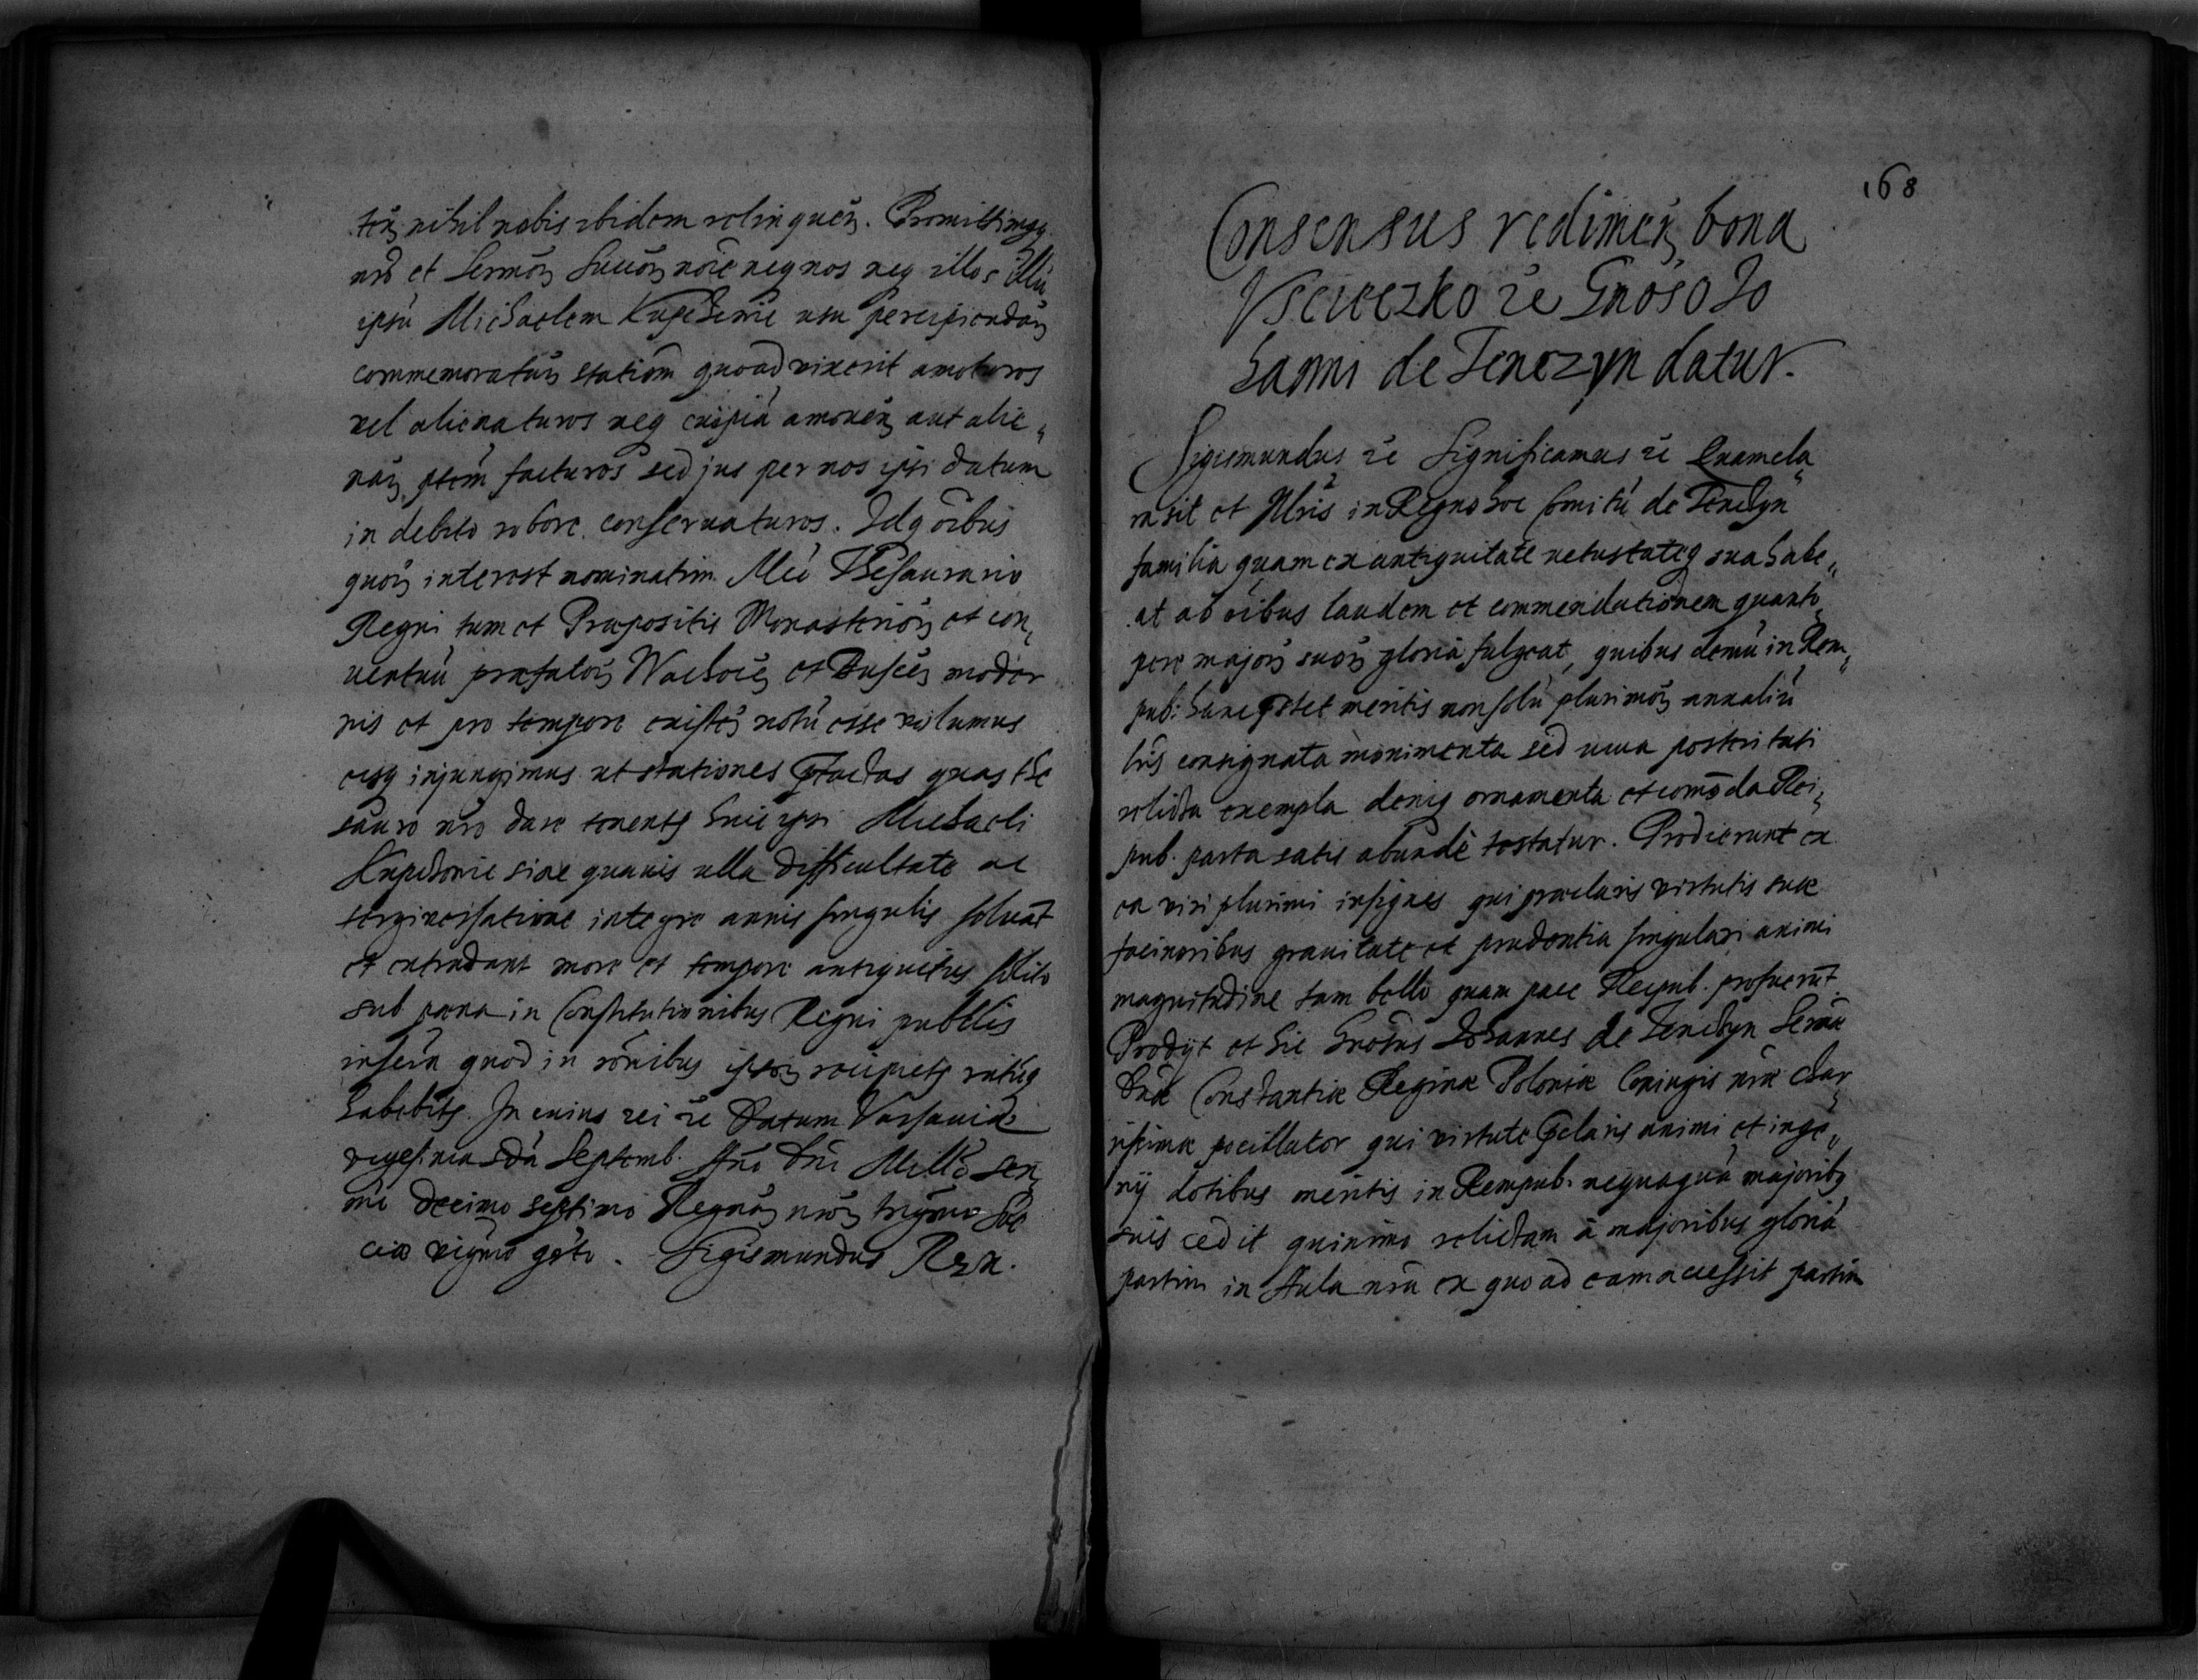 teñ nihil nobis ibidem relinqueñ. Promittimusq
nrõ et Sermõr Succõr nõie neq nos neq illos illũ
ipsũ Michaelem usu percipiendar
commemoratar statioñ quoad vixerit amoturos
vel alienaturos neq cuipiã amoveñ aut alie„
nañ ptem facturos sed jus per nos ipsi datum
in debito robore conservaturos. Idq oibus
quor interest nominatim Mco Thesaurario
Regni tum et Præpositis Monasterior et con„
ventuũ præfator Wachocẽ et Buscẽ moder
nis et pro tempore existeñ notũ esse volumus
eisq injungimus ut stationes ptactas quas the
sauro nro dare tenentr huic ipsi Michaeli
sine quavis ulla difficultate ac
tergiversatione integre annis singulis solvãt
et extradant more et tempore antiquitus solito
sub pæna in Constitutionibus Regni publĩs
inserta quod in rõnibus ipsor recipietr ratũq
habebitr. In cuius rei &c Datum Varsaviæ
vigesima sdã Septemb. Año Dni Millõ sexⁿ
mo decimo septimo Regnor nror trigmo Sue
ciæ vigmo q̃to. Sigismundus Rex.
168
Consensus redimeñ bona
Uscieczko &c Gnoso Jo
hanni de Tenczyn datur.
Sigismundus &c Significamus &c Quamcla„
ra sit et Illris in Regno hoc Comitũ de Tenczyn
familia quam ex antiquitate vetustateq sua habe„
at ab oibus laudem et commendationem quanto„
pere major suor gloria fulgeat, quibus demũ in Rem„
pub: hanc ptet meritis non solũ plurimor annaliũ
lris consignata monimenta sed viva posteritati
relicta exempla deniq ornamenta et comoda Rei„
pub. parta satis abundè testatur. Prodierunt ex
ea viri plurimi insignes qui præclaris virtutis suæ
facinoribus gravitate et prudentia singulari animi
magnitudine tam belli quam pace Reipub. profuerũt.
Prodyt et hic Gnosus Johannes de Tenczyn Sermæ
Dnæ Constantiæ Reginæ Poloniæ Coniugis nræ char„
issimæ pocillator qui virtute pclaris animi et inge„
nij dotibus meritis in Rempub. nequaquã majoribq
suis cedit quinimo relictam à majoribus gloriã
partim in Aula nra ex quo ad eam accessit partim